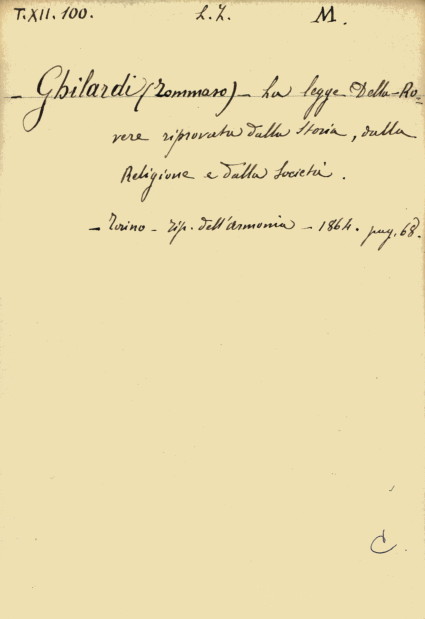 T.XII.100. L.Z. M.
– Ghilardi (Tommaso) – La legge Della-Ro=
vere riprovata dalla Storia, dalla
Religione e dalla Società.
– Torino – tip. dell'Armonia – 1864. pag. 68.
C.